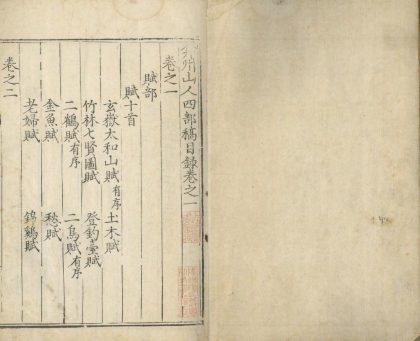 弇州山人四部稿目錄卷之一
卷之一
賦部
賦十首
玄嶽太和山賦有序 土木賦
竹林七賢圖賦 登釣臺賦
二鶴賦有序 二鳥賦有序
金魚賦 愁賦
老婦賦 錦雞賦
卷之二